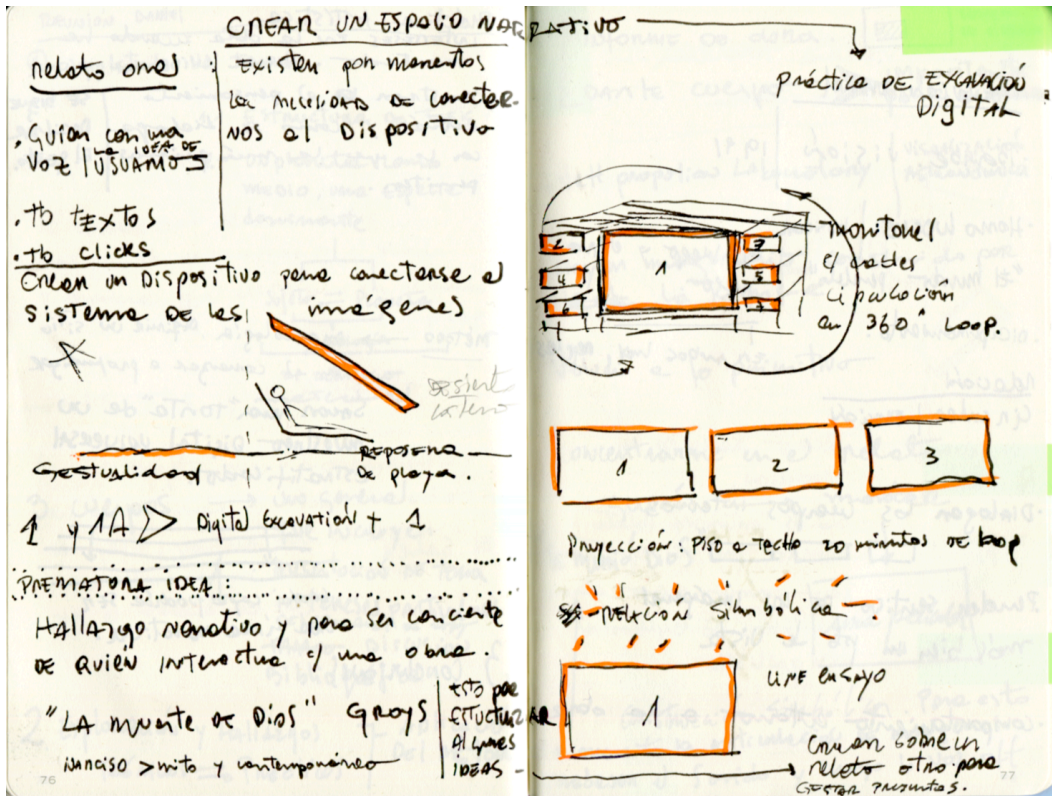 CREAR UN ESPACIO NARRATIVO
relatores :
Existen por momentos
la necesidad de conectar-
nos al Dispositivo
. Guían con una
voz
LA IDEA DE
. tb TEXTOS
. tb clicks
Crear un Dispositivo para conectarse al
SISTEMA DE las imágenes
REPOSERA
de playa.
Gestualidad
1 y 1A > Digital Excavation + 1
PREMATURA IDEA :
HALLAzgo narrativo, para ser consciente
DE quién interactua c/ una obra.
"LA MUERTE DE DIOS" GROYS
NARCISO > mito y contemporáneo
ESTO por
ESTUCTURAR
ALGUNAS
IDEAS -
76
práctica DE EXCAVACIÓN
DIGITAL
1
2
4
6
3
5
7
monitores
c/ partes
circulación
en 360° Loop.
1
2
3
Proyección: PISO a TECHO 20 minutos DE loop
RELACIÓN Simbólica
1
CINE ENSAYO
Crear sobre un
relato otro para
GESTAR PREGUNTAS.
77